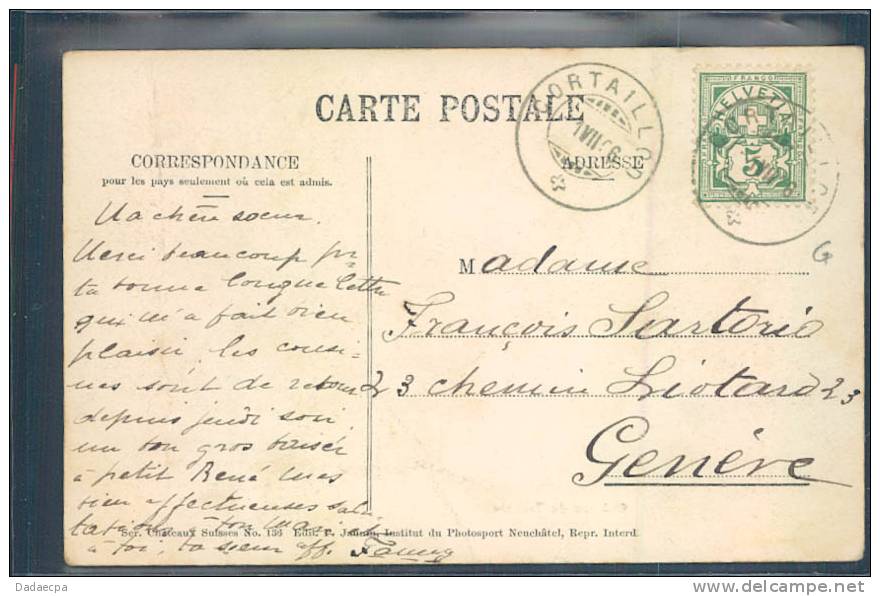 CARTE POSTALE
CORRESPONDANCE
pour les pays seulement où cela est admis.
ADRESSE
CORTAILLOD
1 VII 06
FRANCO
HELVETIA
5
CORTAILLOD
G
Ma chère soeur.
Merci beaucoup pr
ta bonne longue lettre
qui m'a fait bien
plaisir, les cousi-
nes sont de retour
depuis jeudi soir
un bon gros baiser
à petit René mes
bien affectueuses salu
tations à ton mari et
à toi, ta soeur aff. Fanny
Madame
François Sartorio
23 chemin Liotard 23
Genève
Ser. Châteaux Suisses No. 136 Edit. Institut du Photosport Neuchâtel, Repr. Interd.
Dadaecpa
http://www.delcampe.net